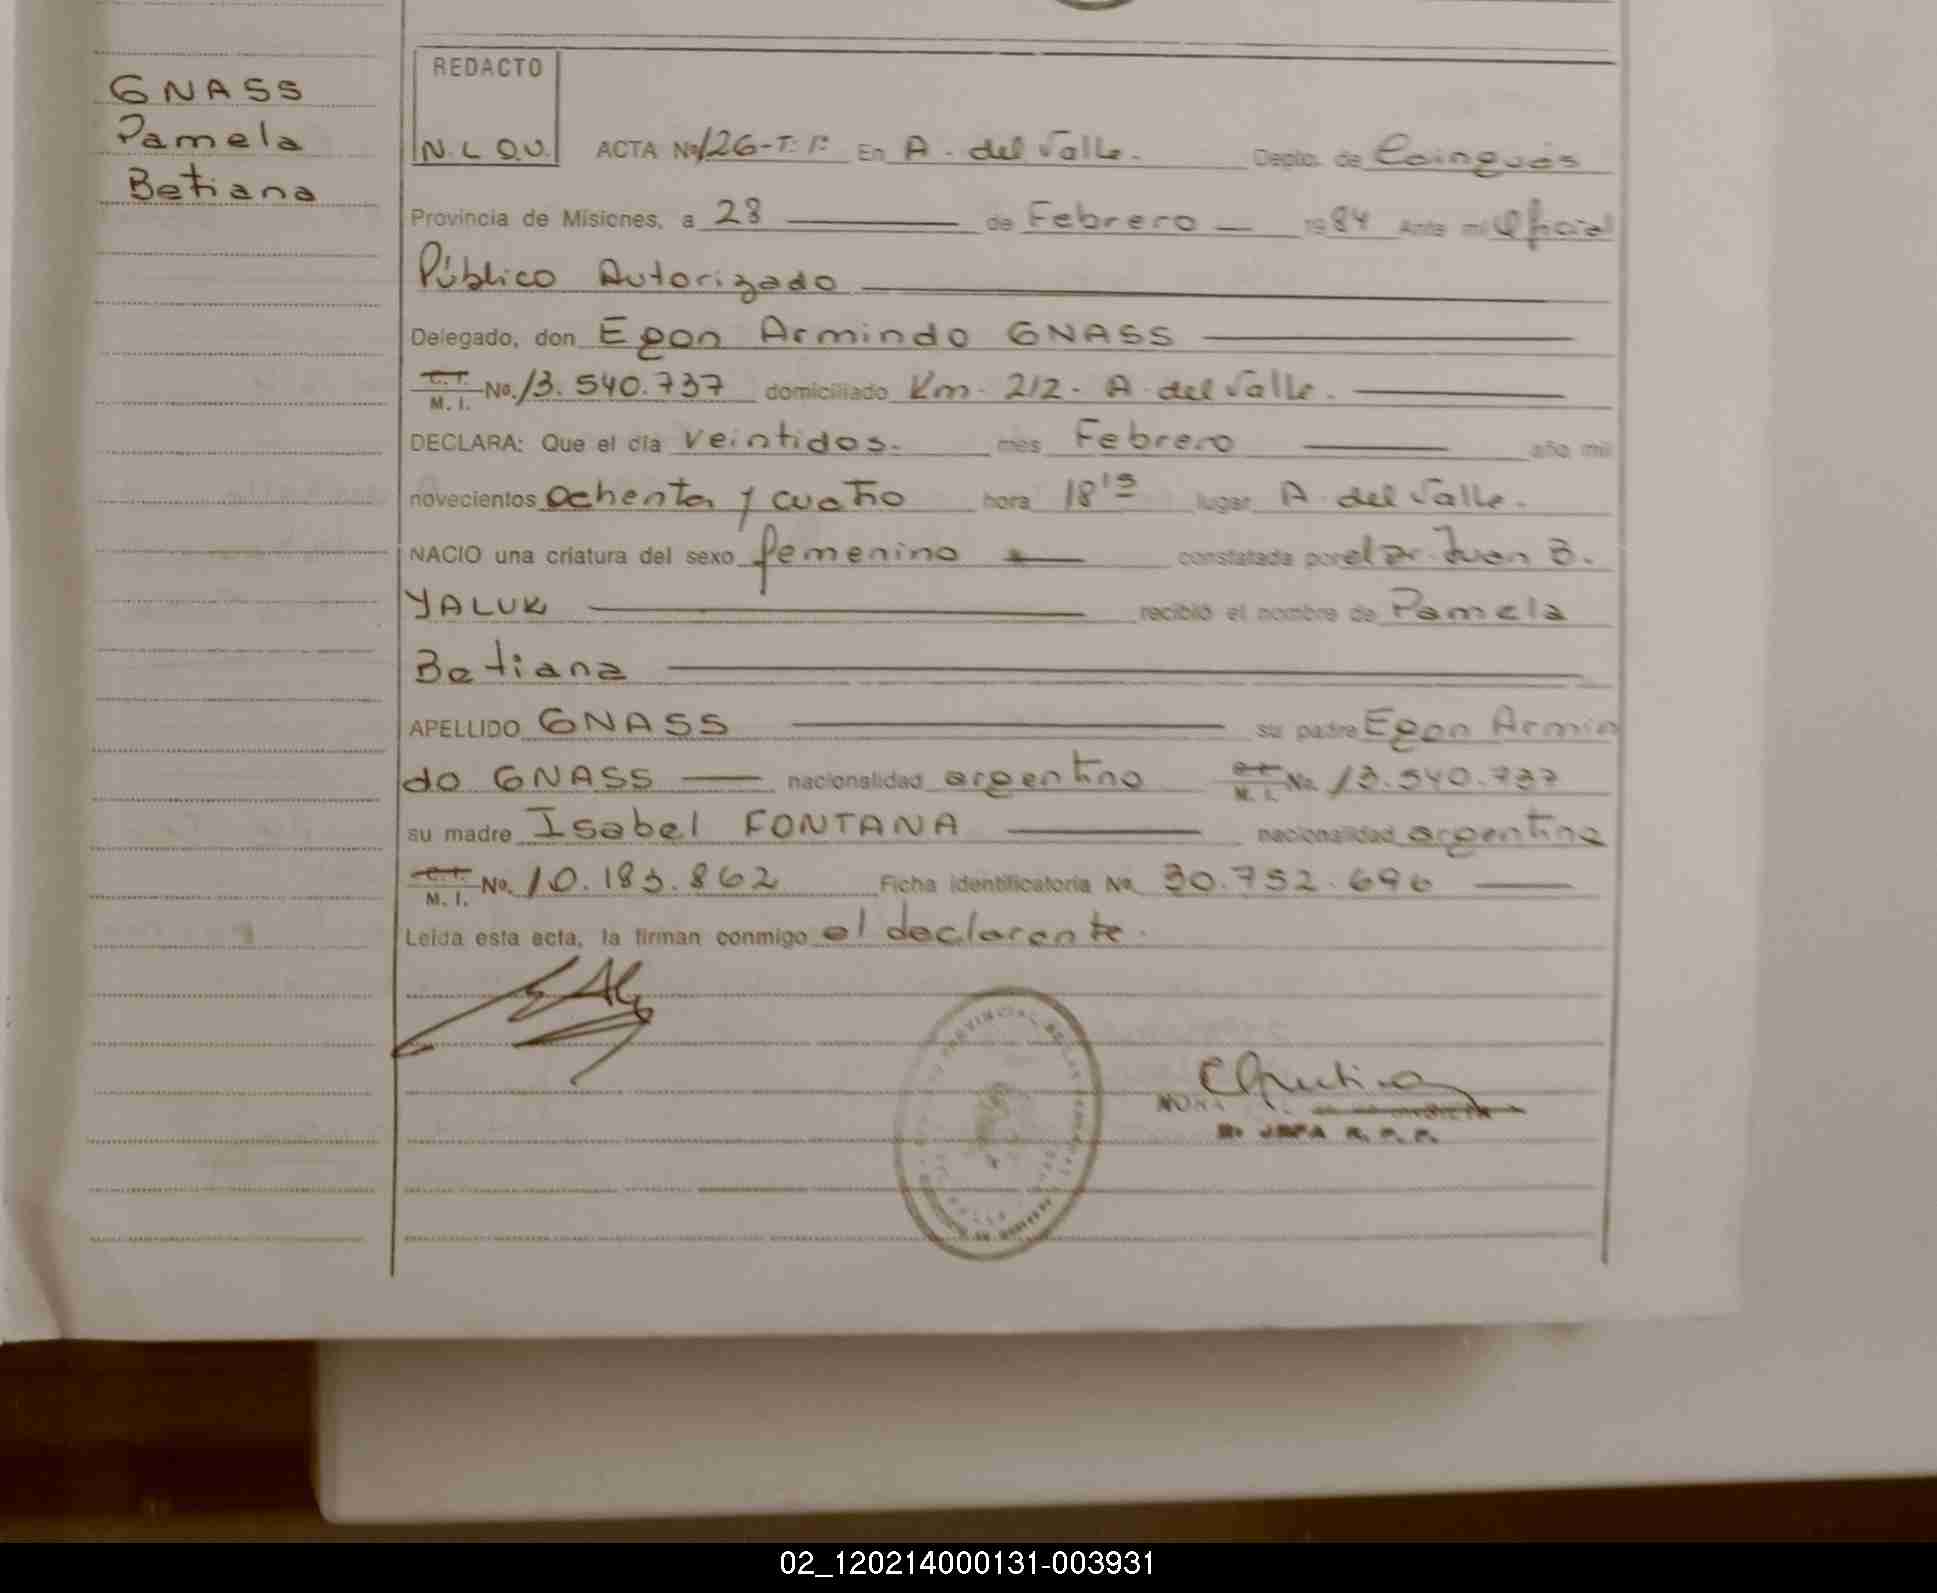 GNASS
Pamela
Betiana
REDACTO
N.L.D.V.
ACTA Nº 126-T:1º En A. del Valle. Depto. de Cainguás
Provincia de Misiones, a 28 de Febrero 1984 Ante mi Oficial
Público Autorizado
Delegado, don Egon Armindo GNASS
C.I. M.I. No. 13.540.737 domiciliado Km. 212. A. del Valle.
DECLARA: Que el día veintidos. mes Febrero año mil
novecientos ochenta y cuatro hora 18¹⁵ lugar A. del Valle.
NACIO una criatura del sexo femenino constatada por el Dr. Juan B.
YALUK recibió el nombre de Pamela
Betiana
APELLIDO GNASS su padre Egon Armin
do GNASS nacionalidad argentino M.I. No. 13.540.737
su madre Isabel FONTANA nacionalidad argentina
C.I. M.I. No. 10.183.862 Ficha identificatoria No. 30.752.696
Leida esta acta, la firman conmigo el declarante.
PROVINCIAL DE LAS PERSONAS
JEFA R. P. P.
02_120214000131-003931